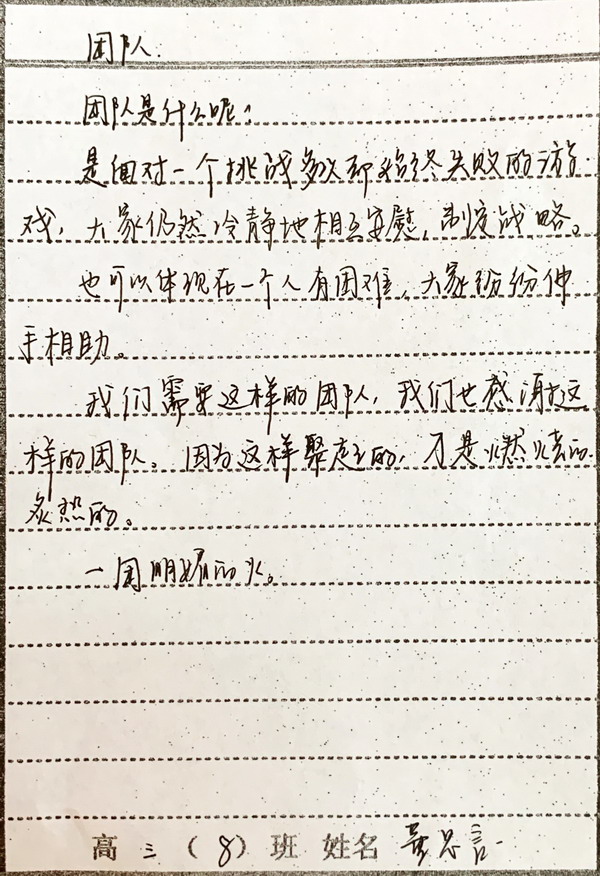 团队.
团队是什么呢?
是面对一个挑战多次却始终失败的游
戏,大家仍然冷静地相互安慰,制定战略。
也可以体现在一个人有困难,大家纷纷伸
手相助。
我们需要这样的团队,我们也感谢这
样的团队。因为这样聚起的,才是燃烧的.
炙热的。
一团明媚的火。
高三(8)班 姓名